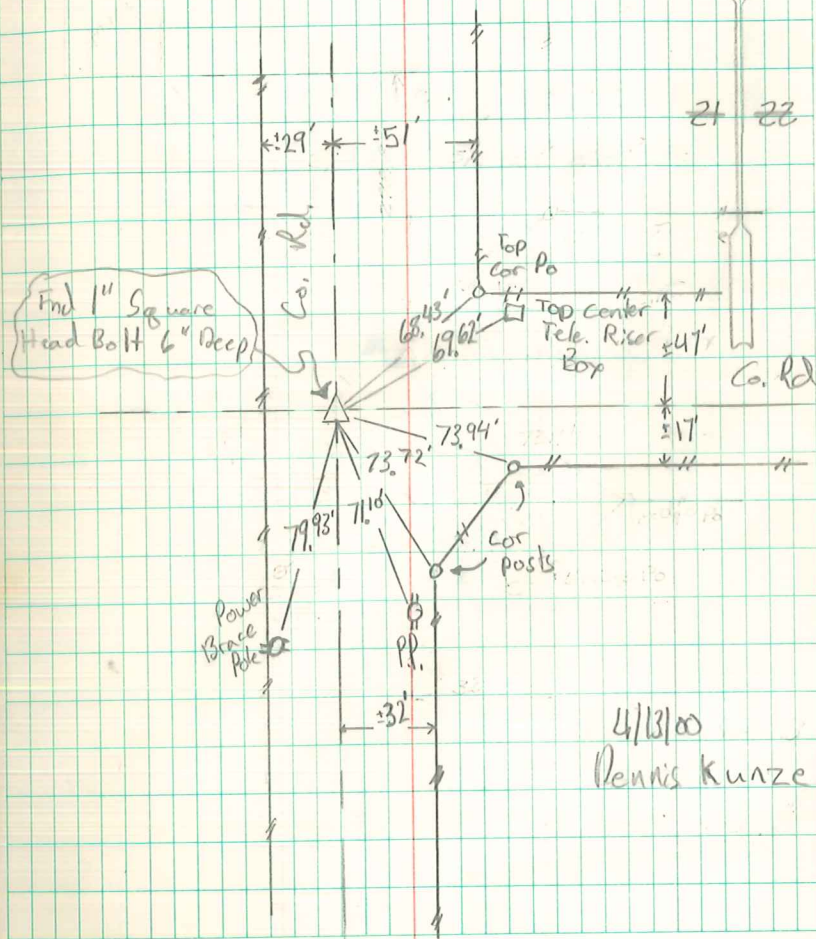 21 22
±29' ±51'
Co. Rd.
Top
Cor Po
Fnd 1" Square
Head Bolt 6" Deep
68.43'
69.62'
Top Center
Tele. Riser
Box
±47'
Co. Rd
±17'
73.94'
73.72'
71.10'
79.93'
Cor
posts
Power
Brace
Pole
P.P.
±32'
4/13/00
Dennis Kunze